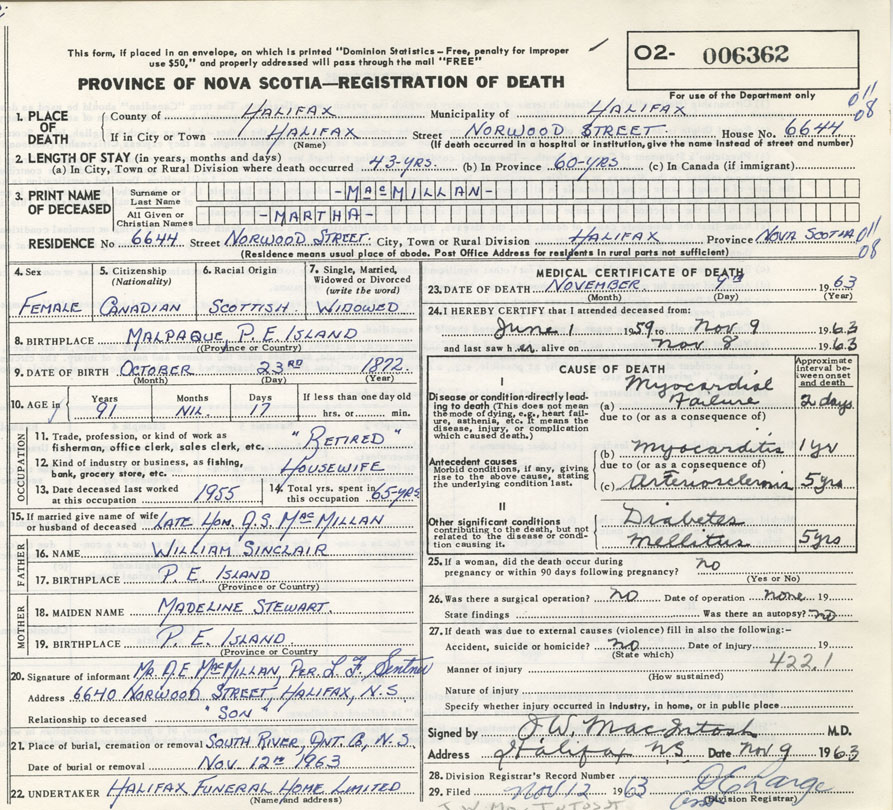 This form, if placed in an envelope, on which is printed "Dominion Statistics – Free, penalty for improper
use $50," and properly addressed will pass through the mail "FREE"
O2- 006362
For use of the Department only
PROVINCE OF NOVA SCOTIA—REGISTRATION OF DEATH
011
08
1. PLACE OF DEATH
County of HALIFAX Municipality of HALIFAX
If in City or Town HALIFAX Street NORWOOD STREET. House No. 6644
(Name) (If death occurred in a hospital or institution, give the name instead of street and number)
2. LENGTH OF STAY (in years, months and days)
(a) In City, Town or Rural Division where death occurred 43-YRS. (b) In Province 60-YRS (c) In Canada (if immigrant)
3. PRINT NAME OF DECEASED
Surname or Last Name -MACMILLAN-
All Given or Christian Names -MARTHA-
RESIDENCE No 6644 Street NORWOOD STREET. City, Town or Rural Division HALIFAX Province NOVA SCOTIA
011
08
(Residence means usual place of abode. Post Office Address for residents in rural parts not sufficient)
4. Sex
FEMALE
5. Citizenship (Nationality)
CANADIAN
6. Racial Origin
SCOTTISH
7. Single, Married, Widowed or Divorced (write the word)
WIDOWED
8. BIRTHPLACE MALPAQUE, P. E. ISLAND
(Province or Country)
9. DATE OF BIRTH OCTOBER 23RD 1872.
(Month) (Day) (Year)
10. AGE in Years Months Days If less than one day old
91 NIL. 17 hrs. or min.
OCCUPATION
11. Trade, profession, or kind of work as
fisherman, office clerk, sales clerk, etc. "RETIRED"
12. Kind of industry or business, as fishing,
bank, grocery store, etc. HOUSEWIFE
13. Date deceased last worked
at this occupation 1955
14. Total yrs. spent in
this occupation 65-YRS
15. If married give name of wife
or husband of deceased LATE HON. A.S. MACMILLAN
FATHER
16. NAME WILLIAM SINCLAIR
17. BIRTHPLACE P. E. ISLAND
(Province or Country)
MOTHER
18. MAIDEN NAME MADELINE STEWART.
19. BIRTHPLACE P. E. ISLAND.
(Province or Country)
20. Signature of informant MR. A.E. MACMILLAN, PER. L. F.
Address 6640 NORWOOD STREET, HALIFAX, N.S.
Relationship to deceased "SON"
21. Place of burial, cremation or removal SOUTH RIVER, ANT. Co, N.S.
Date of burial or removal NOV. 12TH 1963
22. UNDERTAKER HALIFAX FUNERAL HOME LIMITED
(Name and address)
MEDICAL CERTIFICATE OF DEATH
23. DATE OF DEATH NOVEMBER 9th 1963
(Month) (Day) (Year)
24. I HEREBY CERTIFY that I attended deceased from:
June 1 1959 to Nov 9 1963
and last saw her alive on Nov 8 1963
CAUSE OF DEATH
Approximate interval between onset and death
I
Disease or condition-directly leading to death (This does not mean the mode of dying, e.g., heart failure, asthenia, etc. It means the disease, injury, or complication which caused death.)
(a) Myocardial Failure 2 days
due to (or as a consequence of)
Antecedent causes
Morbid conditions, if any, giving rise to the above cause, stating the underlying condition last.
(b) Myocarditis 1 yr
due to (or as a consequence of)
(c) Arteriosclerosis 5 yrs
II
Other significant conditions
contributing to the death, but not related to the disease or condition causing it.
Diabetes
Mellitus 5 yrs
25. If a woman, did the death occur during
pregnancy or within 90 days following pregnancy? no
(Yes or No)
26. Was there a surgical operation? no Date of operation none 19
State findings Was there an autopsy? no
27. If death was due to external causes (violence) fill in also the following:–
Accident, suicide or homicide? no Date of injury 19
(State which)
422.1
Manner of injury
(How sustained)
Nature of injury
Specify whether injury occurred in industry, in home, or in public place
Signed by J.W. MacIntosh M.D.
Address Halifax N.S. Date Nov 9 1963
28. Division Registrar's Record Number
29. Filed Nov 12 1963
(Division Registrar)